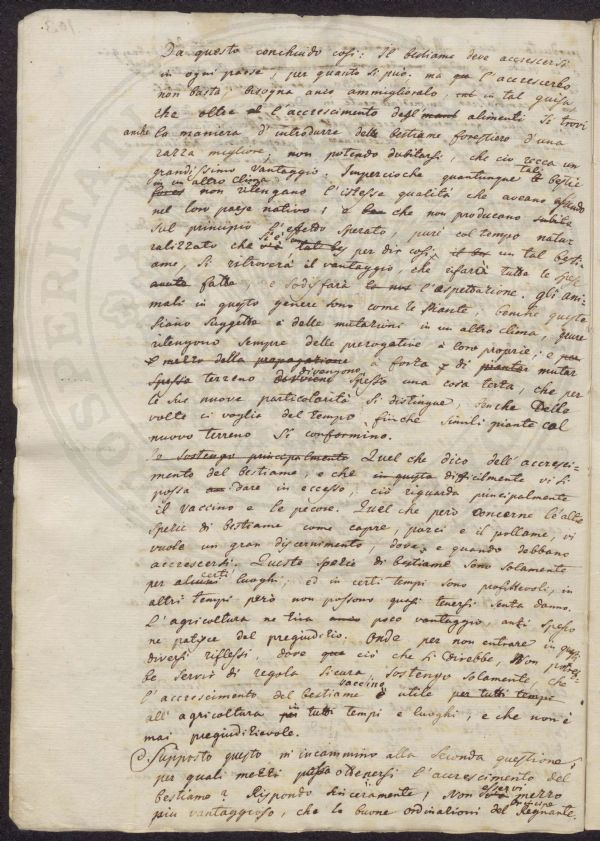 Da questo conchiudo così: Il bestiame deve accrescersi
in ogni paese, per quanto si può. ma l'accrescerlo
non basta, bisogna anco ammigliorarlo in tal guisa
che oltre l'accrescimento degl' alimenti si trovi
anche la maniera d'introdurre delle bestiame forestiero d'una
razza migliore, non potendo dubitarsi, che ciò recca un
grandissimo vantaggio. Impercioche quantunque tali bestie
in un'altro clima non ritengano l'istesse qualità che aveano
nel loro paese nativo, e che non producano subito
sul principio l'effetto sperato, puri col tempo natu
ralizzato che si è per dir così, un tal besti
ame, si ritroverà il vantaggio, che rifarà tutte le spese
fatte, e sodisfarà l'aspettazione. gli ani-
mali in questo genere sono come le piante, benche queste
siano suggette a delle mutazioni in un altro clima, pure
ritengono sempre delle prerogative a loro proprie, e
e mezzo della propagatione a forza di mutar
spesso terreno divengono spesso una cosa terza, che per
le sue nuove particolarità si distingue, benche delle
volte ci voglia del tempo finchè simili piante col
nuovo terreno si conformino.
Io sostengo principalmente Quel che dico dell'accresci-
mento del bestiame, e che in questo difficilmente vi si
possa dare in eccesso, ciò riguarda principalmente
il vaccino e le pecore. Quel che però concerne l'altre
spezie di bestiame, come capre, porci e il pollame, vi
vuole un gran discernimento, dove, e quando debbano
accrescersi. Queste spezie di bestiame sono solamente
per certi luoghi, ed in certi tempi sono profittevoli, in
altri tempi però non possono quasi tenersi senza danno.
L'agricoltura ne tira poco vantaggio, anzi spesso
ne patisce del pregiudizio. Onde per non entrare in questi
diversi riflessi, dove ciò che si direbbe, non potreb-
be servir di regola sicura, sostengo solamente, che
l'accrescimento del bestiame vaccino è utile per tutti tempi
all'agricoltura in tutti tempi e luoghi, e che non è
mai pregiudizievole.
Supposto questo m'incammino alla seconda questione,
per quali mezzi possa ottenersi l'accrescimento del
bestiame? Rispondo sinceramente, non esservi mezzo
più vantaggioso, che le buone ordinazioni del Principe Regnante.